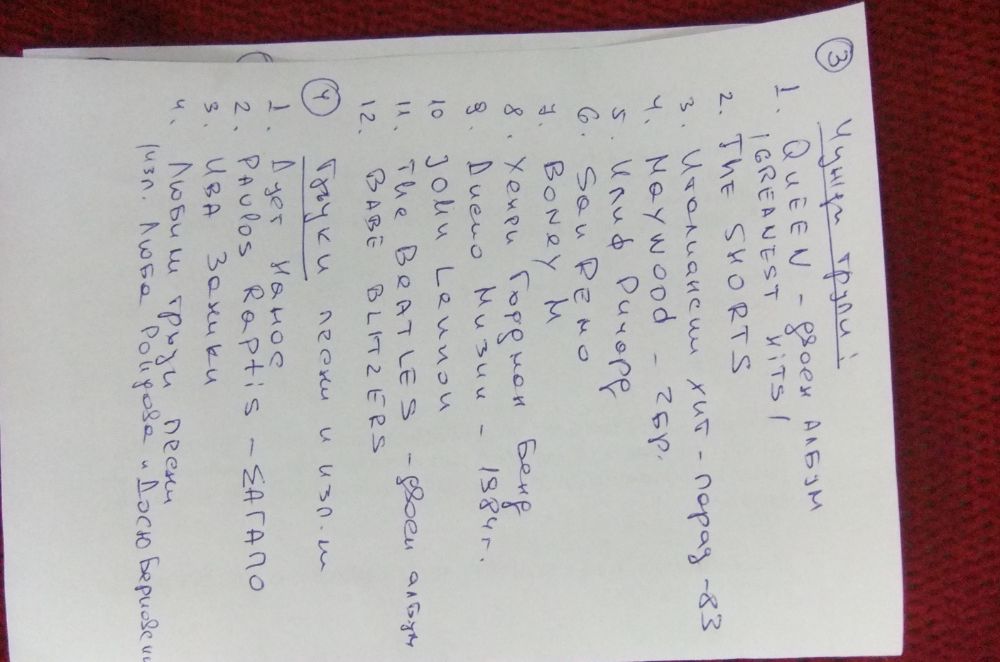 ③ Чужди групи:
1. QUEEN - двоен албум
/GREANEST HITS/
2. THE SHORTS
3. Италиански хит-парад -83
4. MAYWOOD - 2бр.
5. Клиф Ричард
6. San REMO
7. BONEY M
8. Хенри Гордман Бенд
9. Диско Мизии - 1984г.
10 John Lennon
11. The BEATLES - двоен албум
12. BABE BLITZERS
④ Гръцки песни и изп.ли
1. Дует Нанос
2. PAULOS RAptis - ΣΑΓΑΠΟ
3. Ива Заники
4. Любими гръцки песни
/изп. Люба и Досю